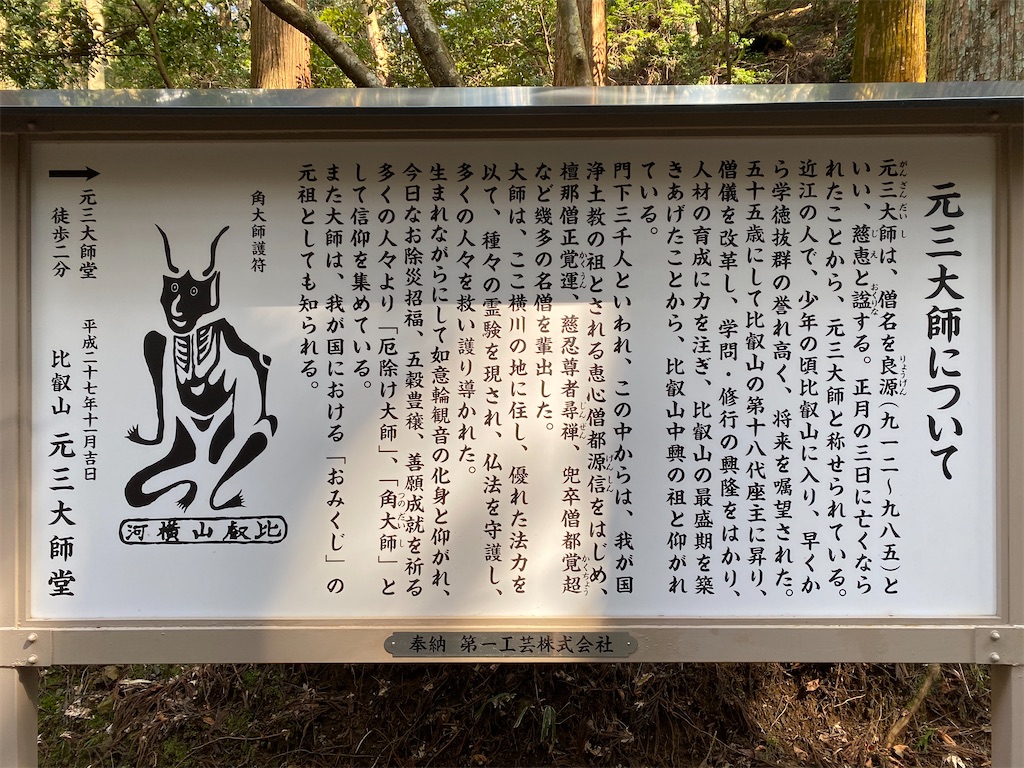 元三大師について
元三大師は、僧名を良源（九一二〜九八五）と
いい、慈恵と諡する。正月の三日に亡くなら
れたことから、元三大師と称せられている。
近江の人で、少年の頃比叡山に入り、早くか
ら学徳抜群の誉れ高く、将来を嘱望された。
五十五歳にして比叡山の第十八代座主に昇り、
僧儀を改革し、学問・修行の興隆をはかり、
人材の育成に力を注ぎ、比叡山の最盛期を築
きあげたことから、比叡山中興の祖と仰がれ
ている。
門下三千人といわれ、この中からは、我が国
浄土教の祖とされる恵心僧都源信をはじめ、
檀那僧正覚運、慈忍尊者尋禅、兜率僧都覚超
など幾多の名僧を輩出した。
大師は、ここ横川の地に住し、優れた法力を
以て、種々の霊験を現され、仏法を守護し、
多くの人々を救い護り導かれた。
生まれながらにして如意輪観音の化身と仰がれ、
今日なお除災招福、五穀豊穣、善願成就を祈る
多くの人々より「厄除け大師」、「角大師」と
して信仰を集めている。
また大師は、我が国における「おみくじ」の
元祖としても知られる。
角大師護符
河横山叡比
平成二十七年十一月吉日
比叡山 元三大師堂
→
元三大師堂
徒歩二分
奉納 第一工芸株式会社